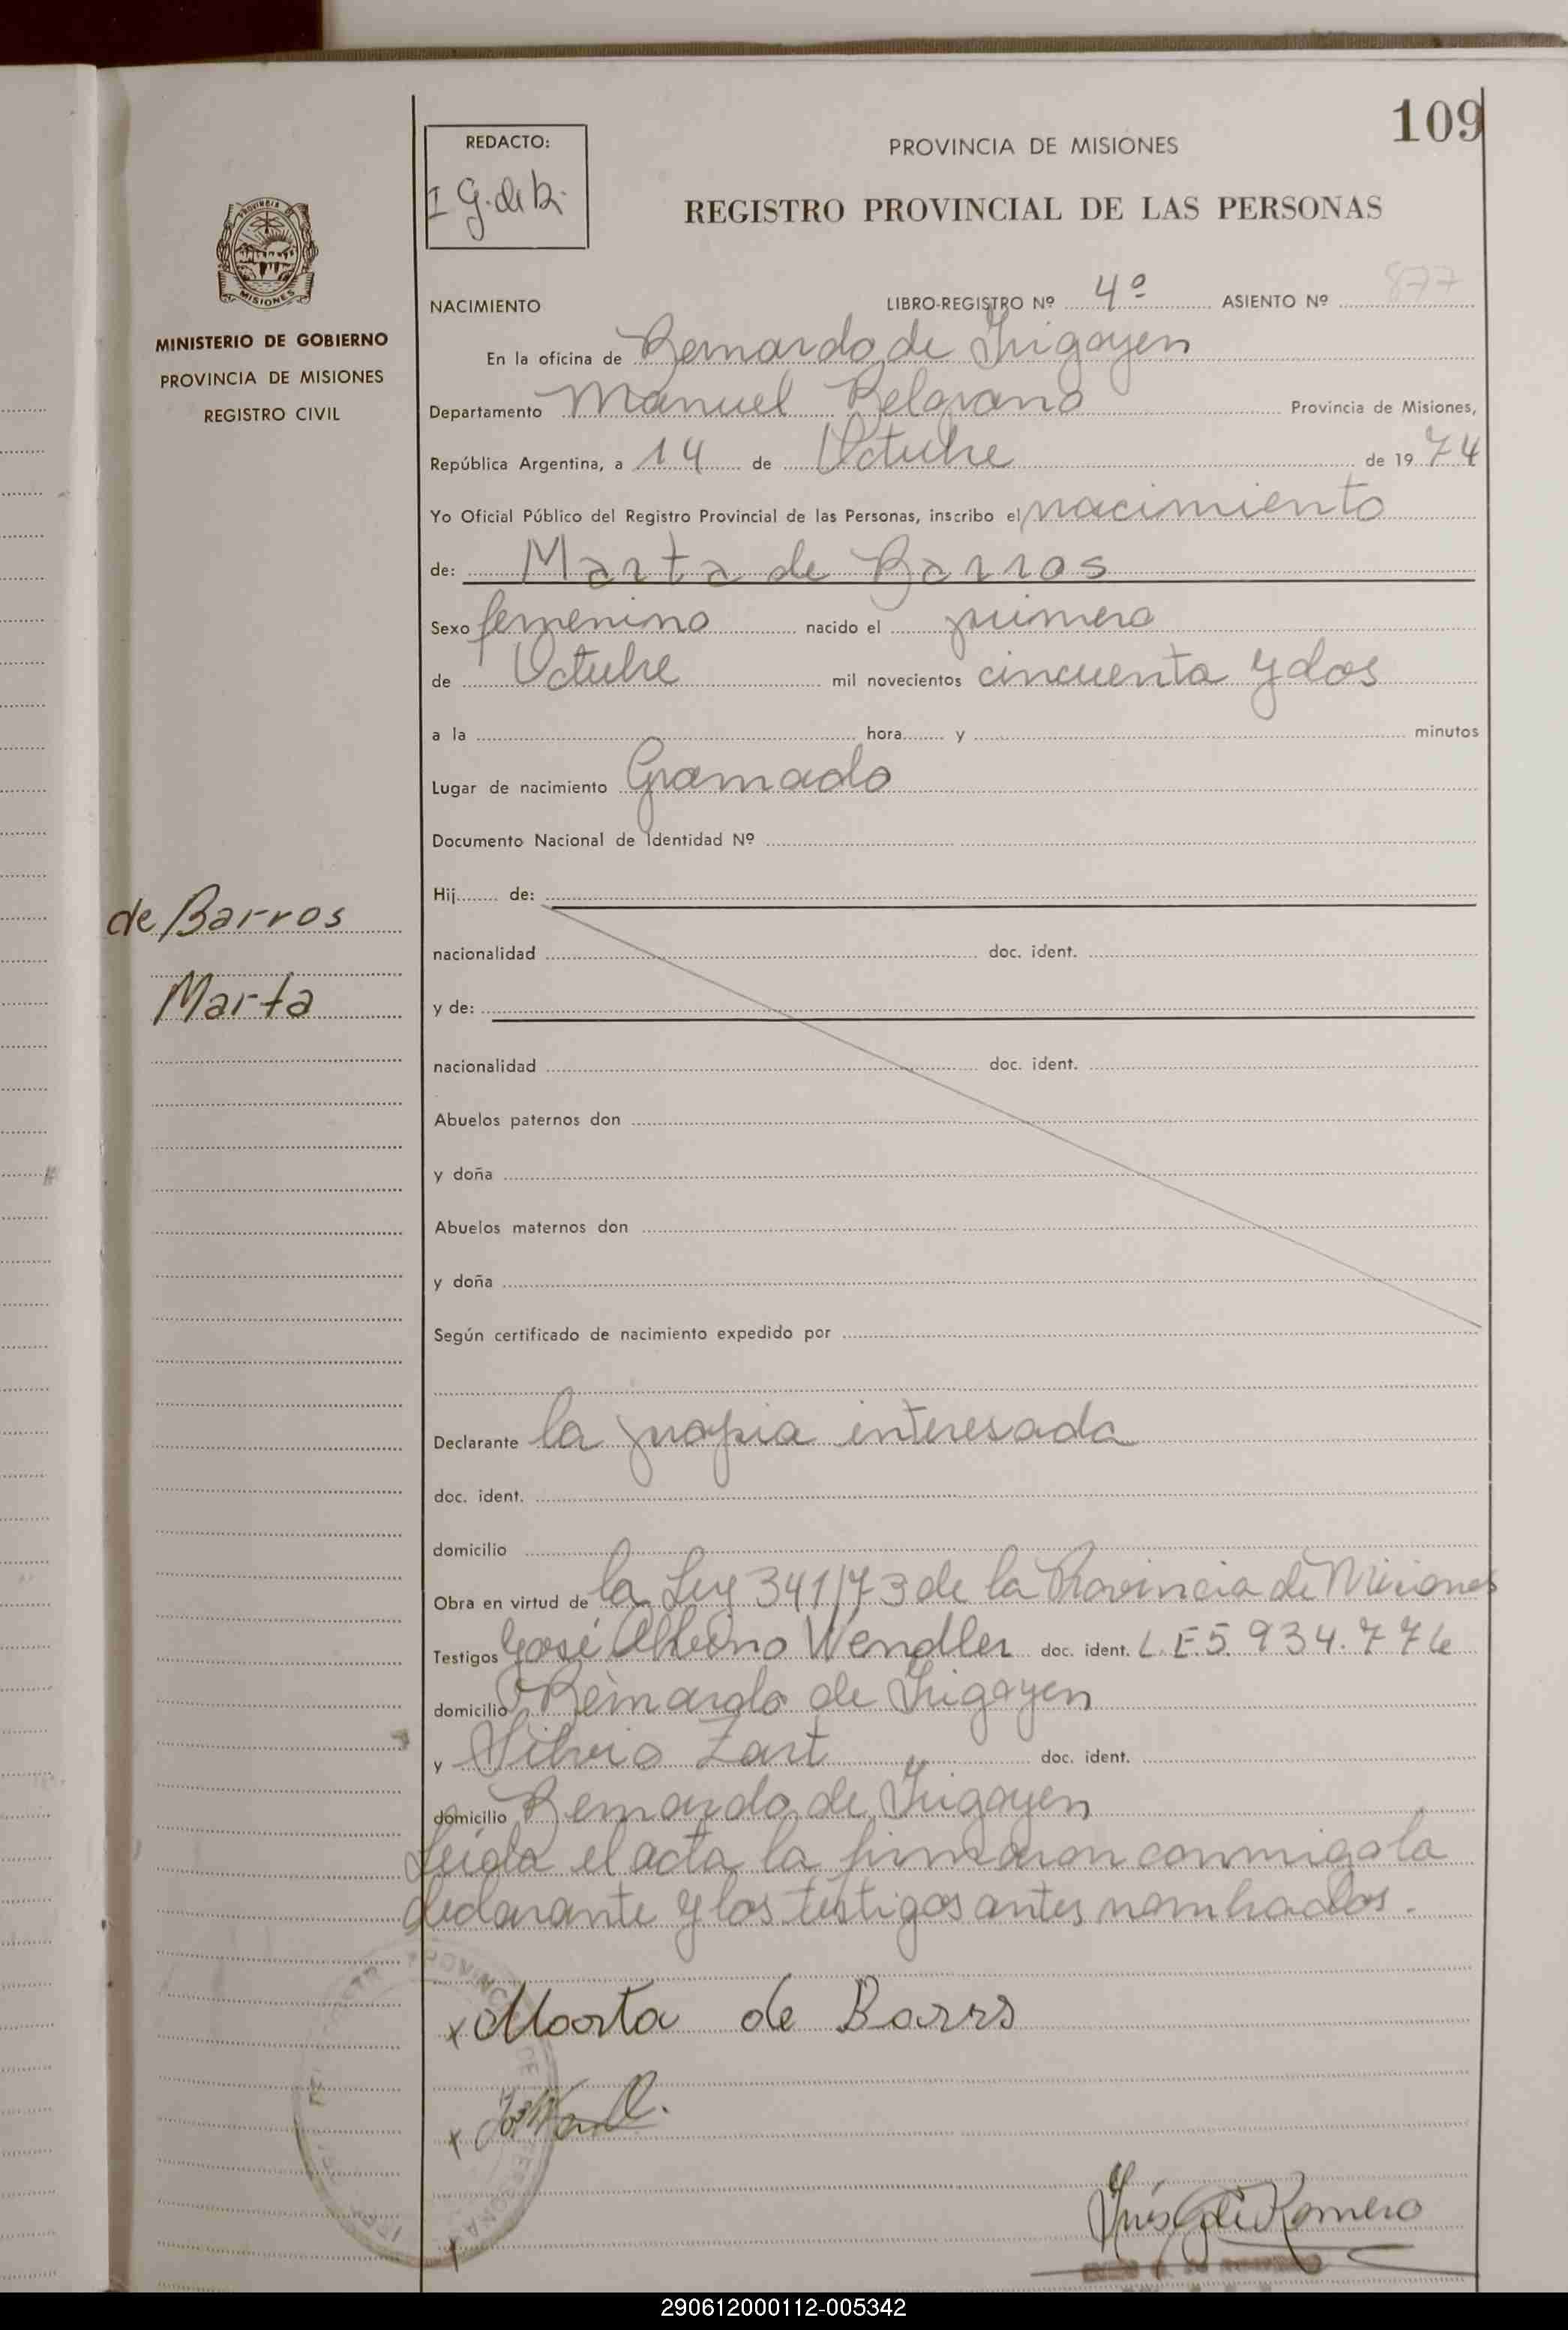 109
REDACTO:
PROVINCIA DE MISIONES
REGISTRO PROVINCIAL DE LAS PERSONAS
MISIONES
MINISTERIO DE GOBIERNO
PROVINCIA DE MISIONES
REGISTRO CIVIL
NACIMIENTO LIBRO-REGISTRO Nº 4º ASIENTO Nº 877
En la oficina de Bernardo de Irigoyen
Departamento Manuel Belgrano Provincia de Misiones,
República Argentina, a 14 de Octubre de 1974
Yo Oficial Público del Registro Provincial de las Personas, inscribo el nacimiento
de: Marta de Barros
Sexo femenino nacido el primero
de Octubre mil novecientos cincuenta y dos
a la hora y minutos
Lugar de nacimiento Gramado
Documento Nacional de Identidad Nº
Hij de:
de Barros
nacionalidad doc. ident.
Marta
y de:
nacionalidad doc. ident.
Abuelos paternos don
y doña
Abuelos maternos don
y doña
Según certificado de nacimiento expedido por
Declarante la propia interesada
doc. ident.
domicilio
Obra en virtud de la Ley 341/73 de la Provincia de Misiones
Testigos José Albino Wendler doc. ident. L.E.5.934.776
domicilio Bernardo de Irigoyen
y Silvio Zart doc. ident.
domicilio Bernardo de Irigoyen
Leída el acta la firmaron conmigo la
declarante y los testigos antes nombrados.
x Marta de Barrs
x
Inés G de Romero
290612000112-005342